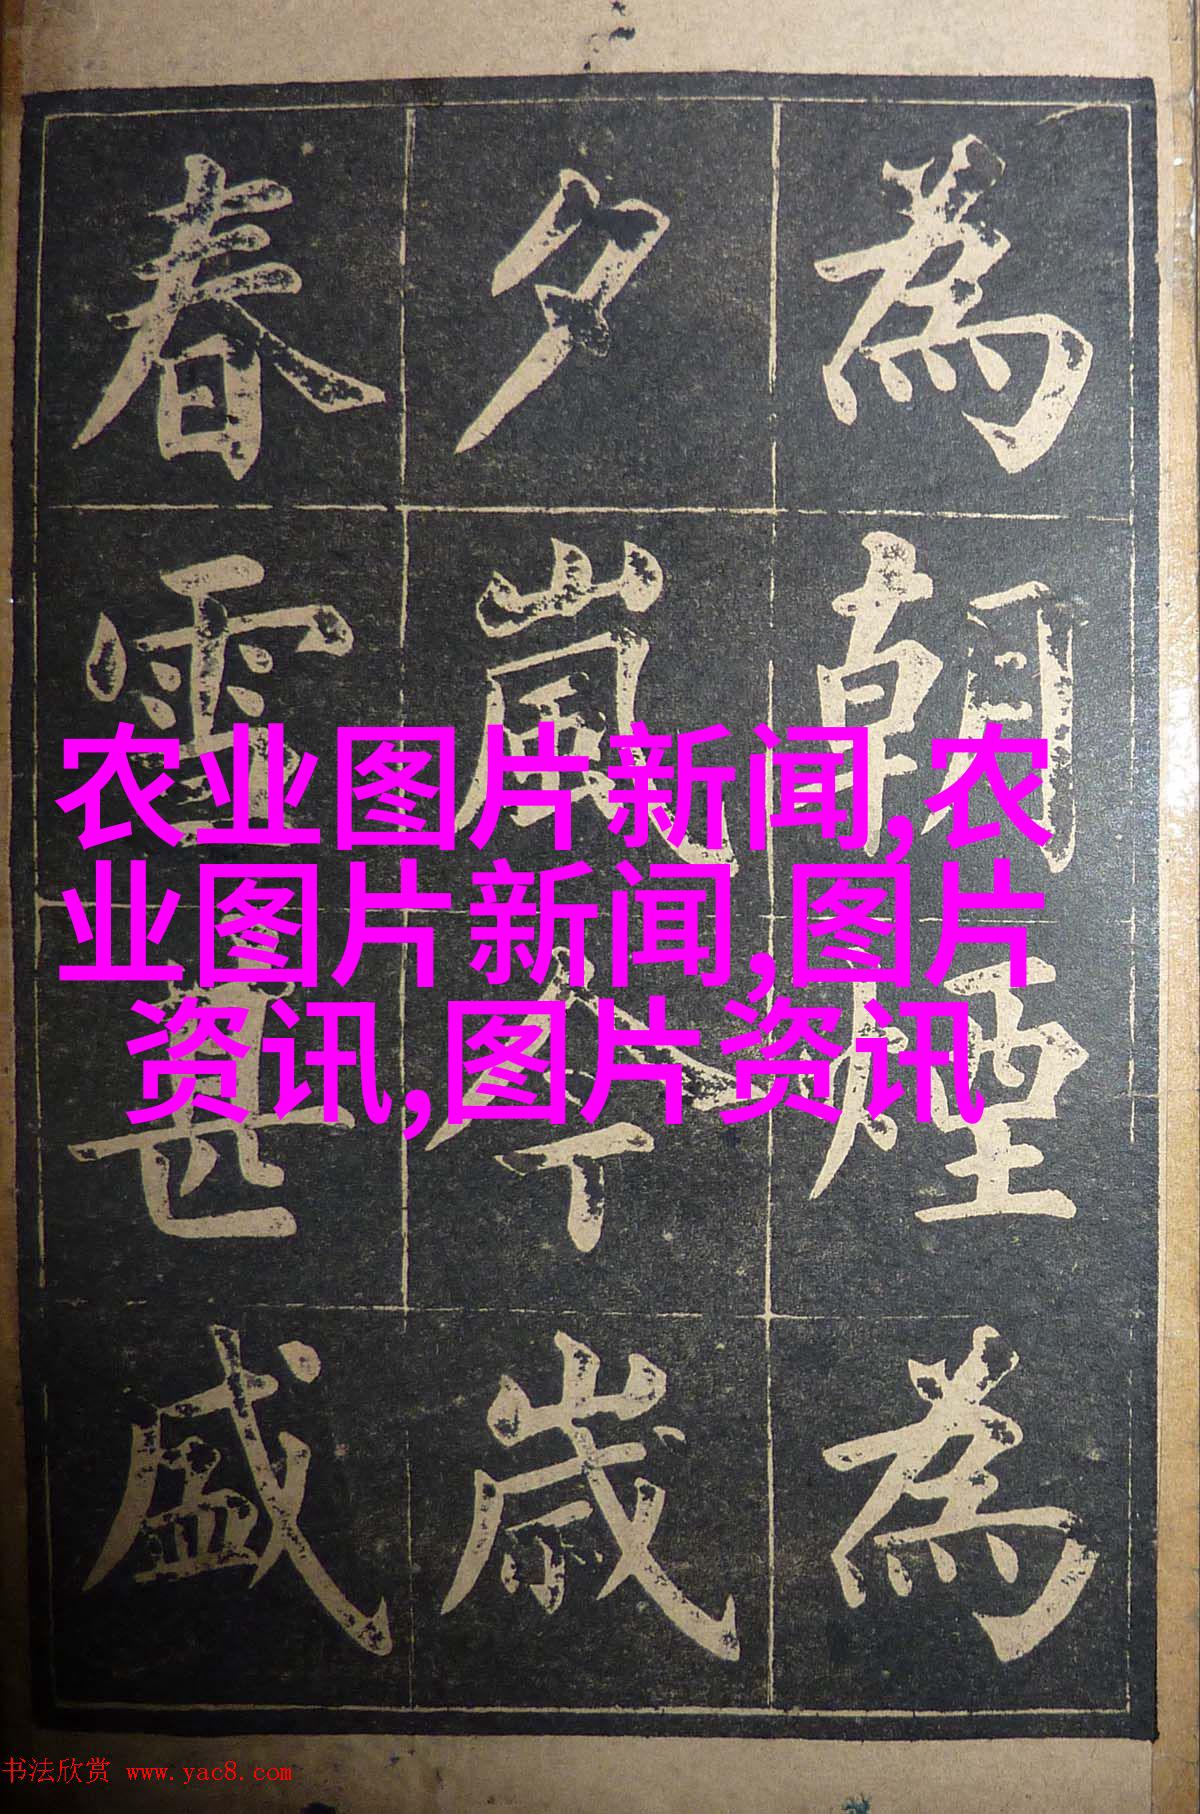 為朝煙為
夕嵐今歲
春雪甚盛
农业图片新闻,农
业图片新闻,图片
资讯,图片资讯
书法欣赏 www.yac8.com